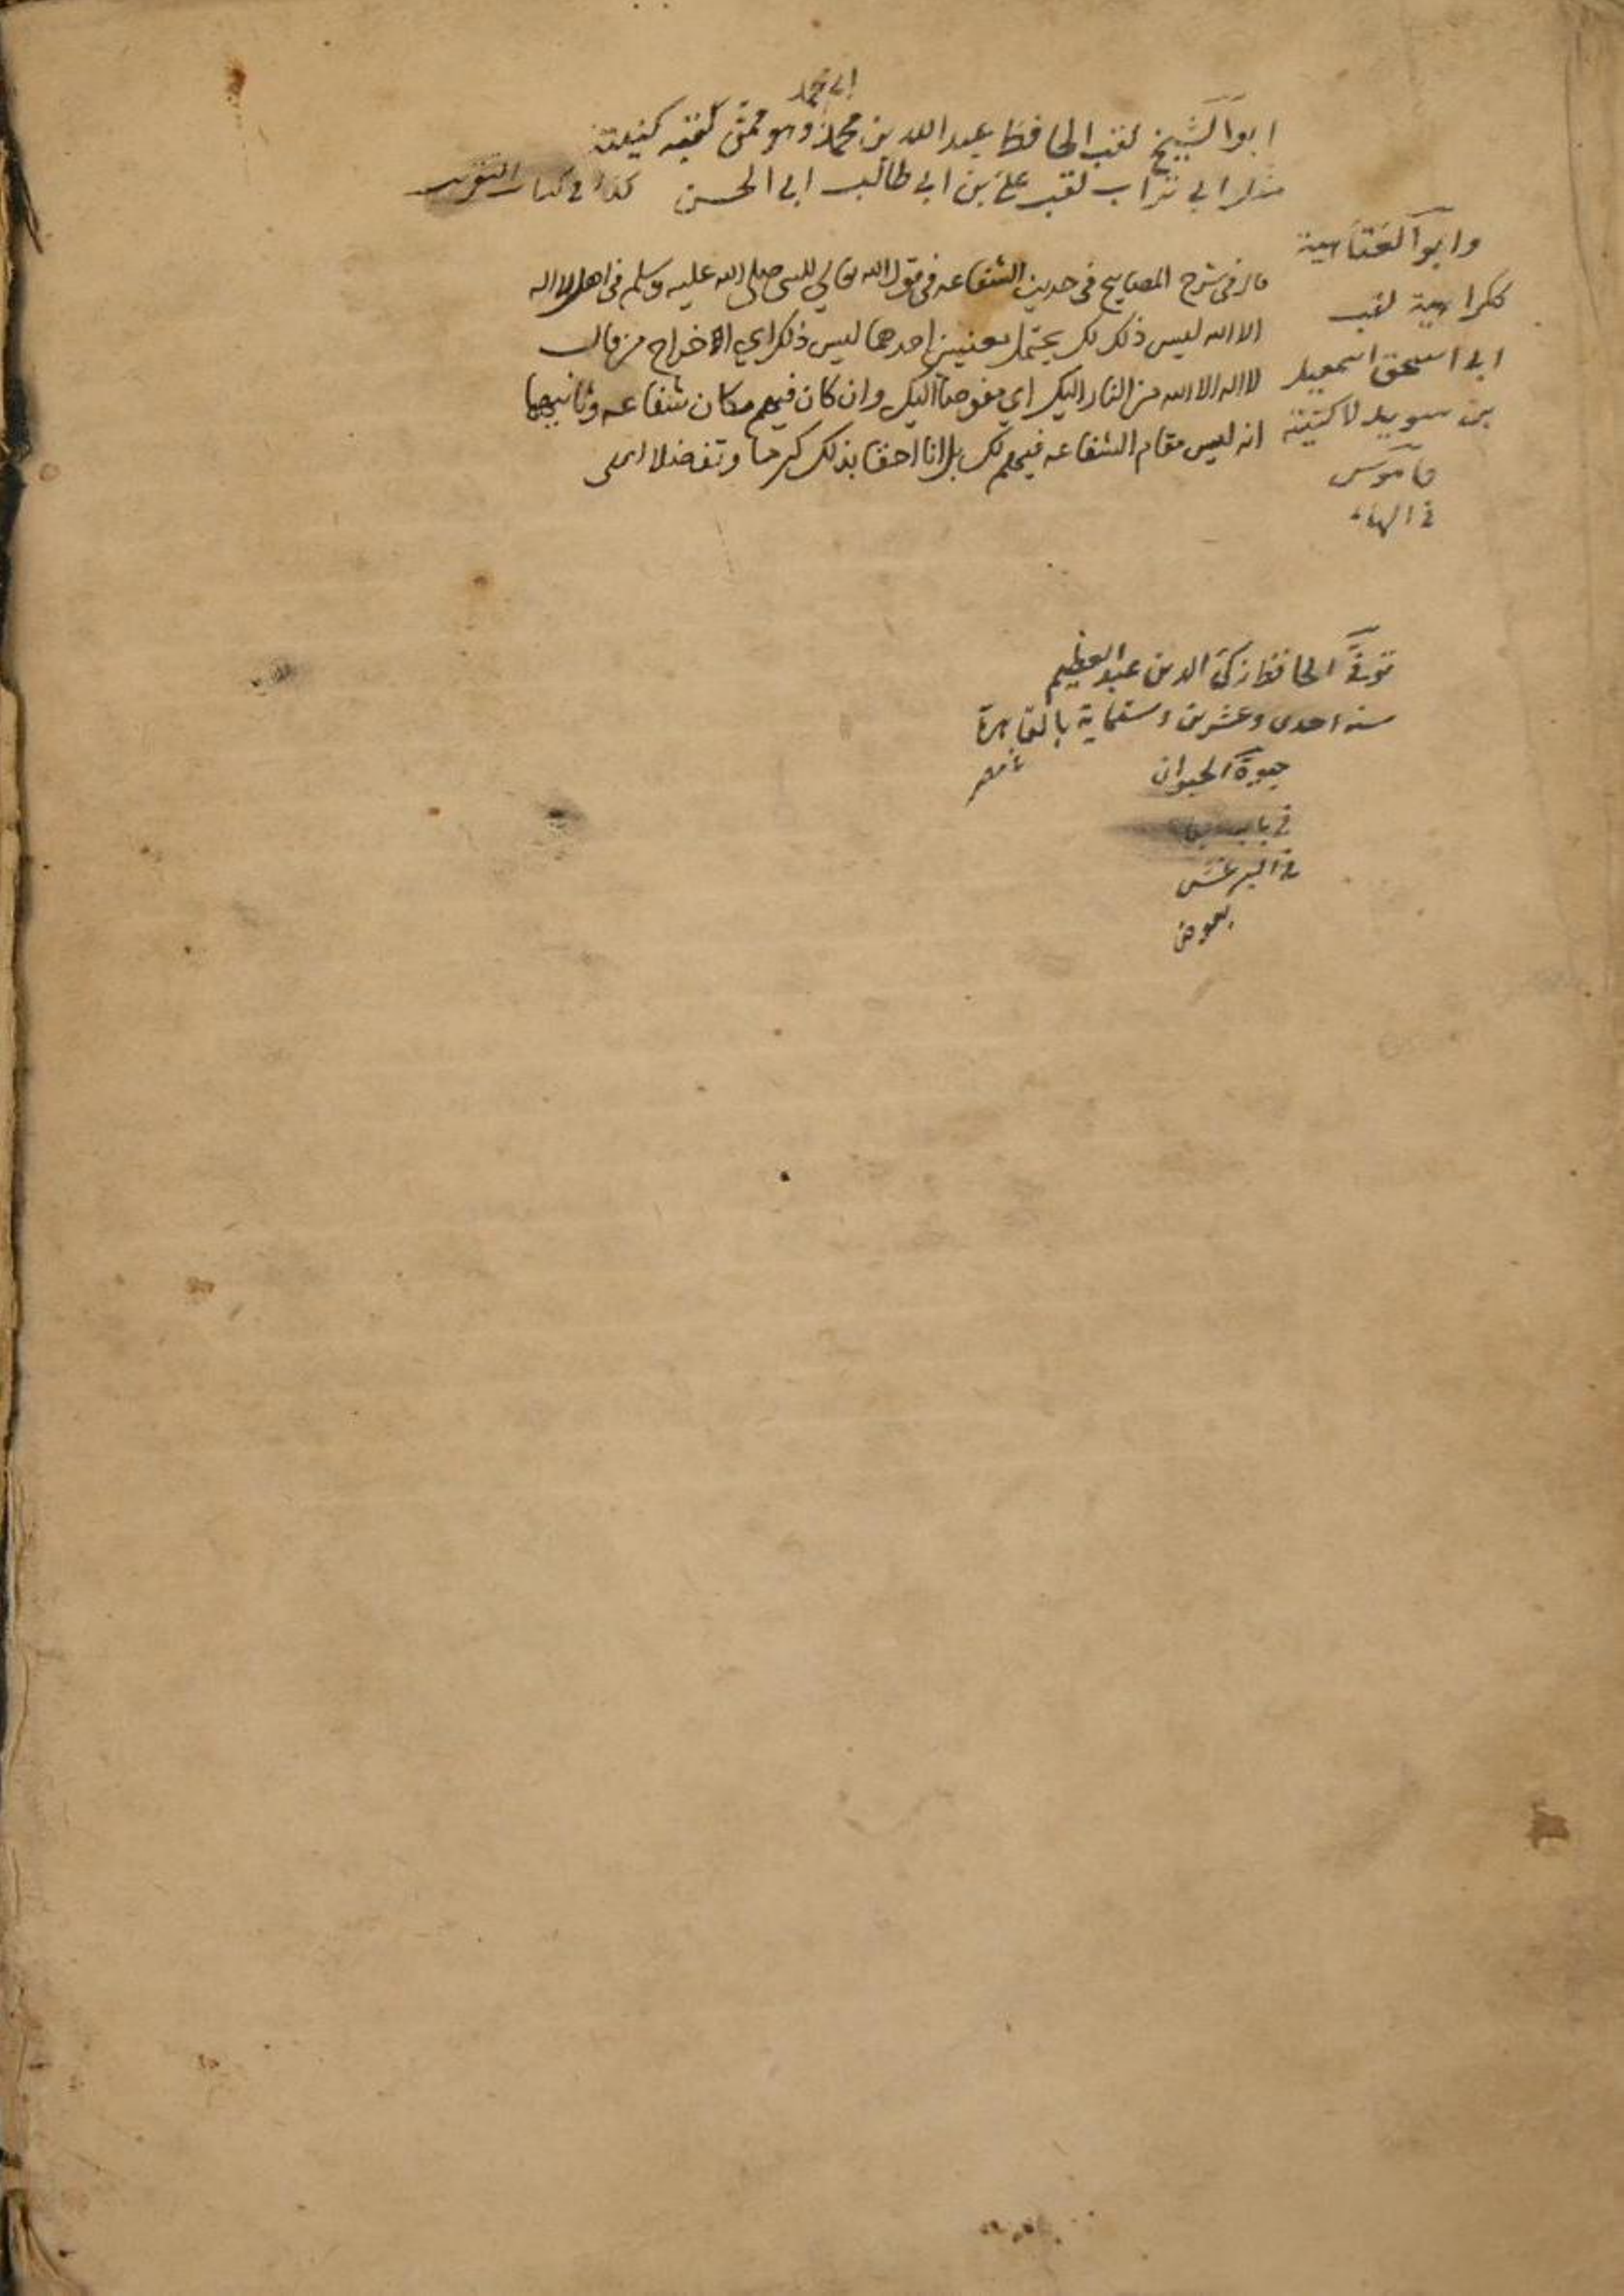 ابي محمد
ابو الشيخ لقب الحافظ عبد الله بن محمد وهو ممن لقبه كنيته
مثل ابي تراب لقب علي بن ابي طالب ابي الحسن كذا في كتاب التقريب
وابو العتاهية
ككراهية لقب
ابي اسحق اسمعيل
بن سويد لا كنيته
قاموس
في الهاء
قال في شرح المصابيح في حديث الشفاعه في قول الله تعالي للنبي صلى الله عليه وسلم في اهل لا اله
الا الله ليس ذلك لك يحتمل معنيين احدهما ليس ذلك اي الاخراج من قال
لا اله الا الله من النار اليك اي مفوضا اليك وان كان فيهم مكان شفاعه وثانيهما
انه ليس مقام الشفاعه فيهم لك بل انا احق بذلك كرما وتفضلا انتهى
توفي الحافظ زكي الدين عبد العظيم
سنه احدى وعشرين وستماية بالقاهرة
مصر
حيوة الحيوان
في باب
في البرغش
بعوض